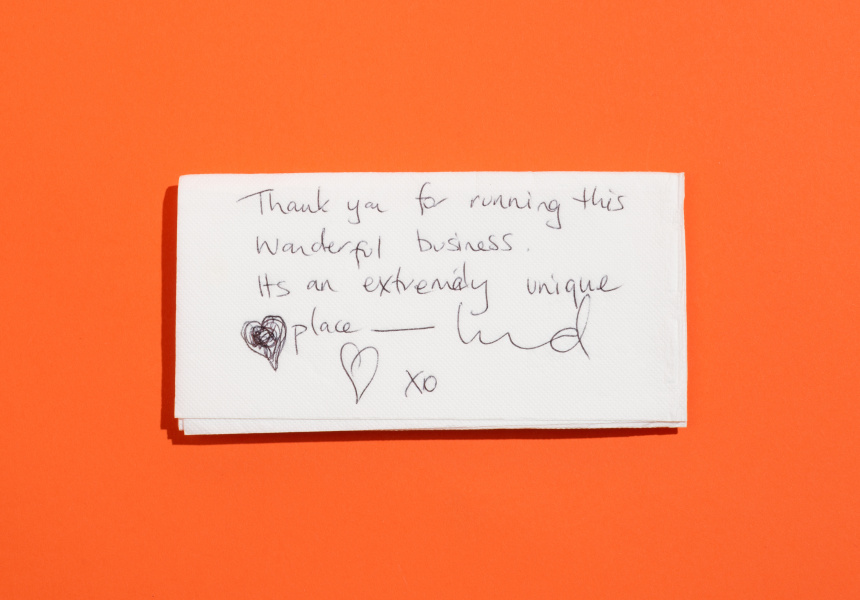 Thank you for running this
wonderful business.
Its an extremely unique
place —
xo